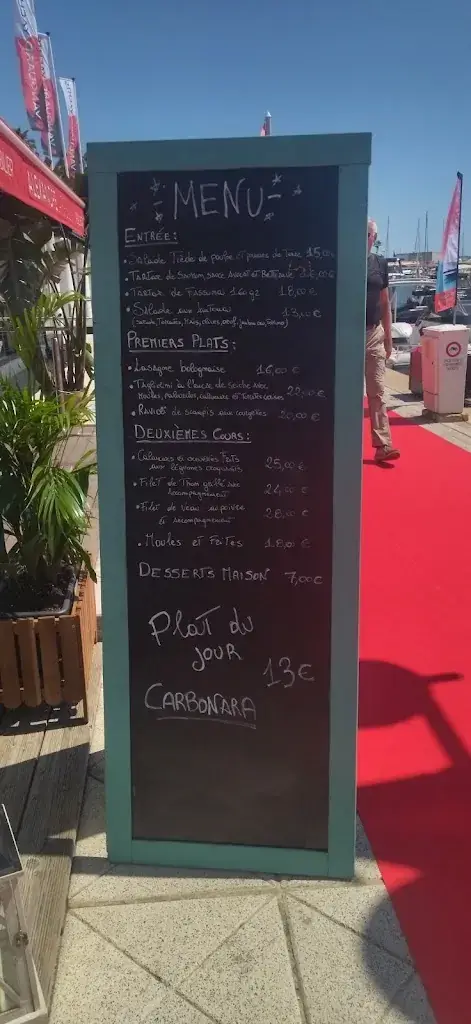 MENU
ENTRÉE:
• Salade Tiède de poulpe et pommes de Terre 15,00€
• Tartare de Saumon, sauce Avocat et Betterave
• Tartar de Fassona 160gr 18,00 €
• Salade 13,00 €
PREMIERS PLATS:
• Lasagne bolognaise 16,00 €
• Tagliolini à l'encre de seiche avec 22,00 €
Moules, palourdes, calamars et Tomates cerises
• Ravioli de scampis aux courgettes 20,00 €
DEUXIÈMES COURS:
• Calamars et crevettes Frits 25,00€
aux légumes croquants
• Filet de Thon grillé avec 24,00 €
accompagnement
• Filet de veau au poivre 28,00 €
et accompagnement
• Moules et Frites 18,00 €
DESSERTS MAISON 7,00€
Plat du
JOUR
13€
CARBONARA